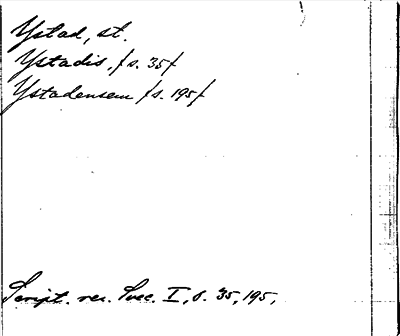 Ystad, st.
Ystadis, /s. 35/
Ystadensem /s. 195/
Script. rer. Svec. I, s. 35, 195,